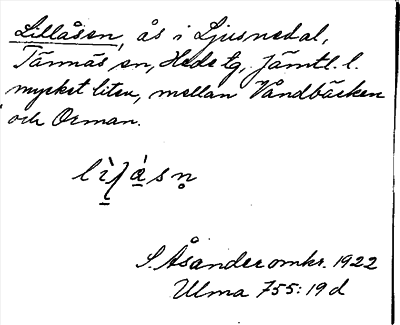 Lillåsen, ås i Ljusnedal,
Tännäs sn, Hede tg, Jämtl. l.
mycket liten, mellan Våndbäcken
och Orman.
S. Åsander omkr. 1922
Ulma 755:19 d